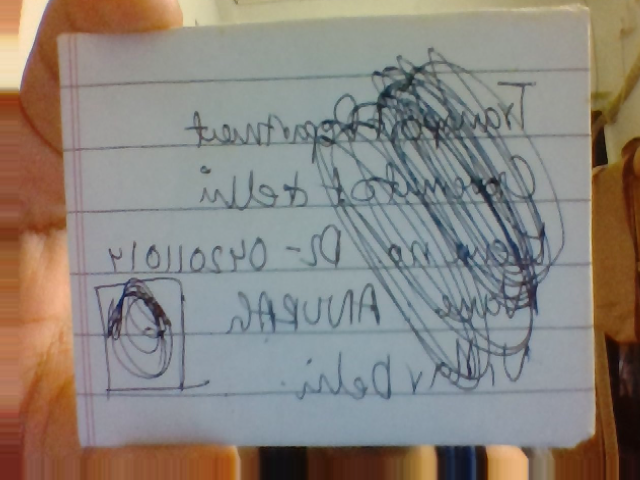 Transport Department
Government of delhi
Licence no. DL-042011014
Name ANURAG
Delhi